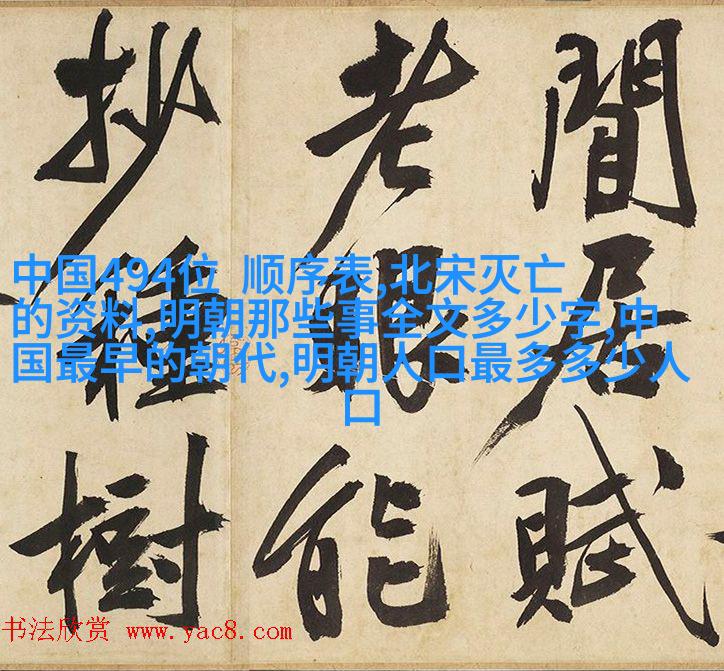 閒居賦
老眼能
抄種樹
中国494位 顺序表,北宋灭亡
的资料,明朝那些事全文多少字,中
国最早的朝代,明朝人口最多多少人
口
书法欣赏 www.yac8.com